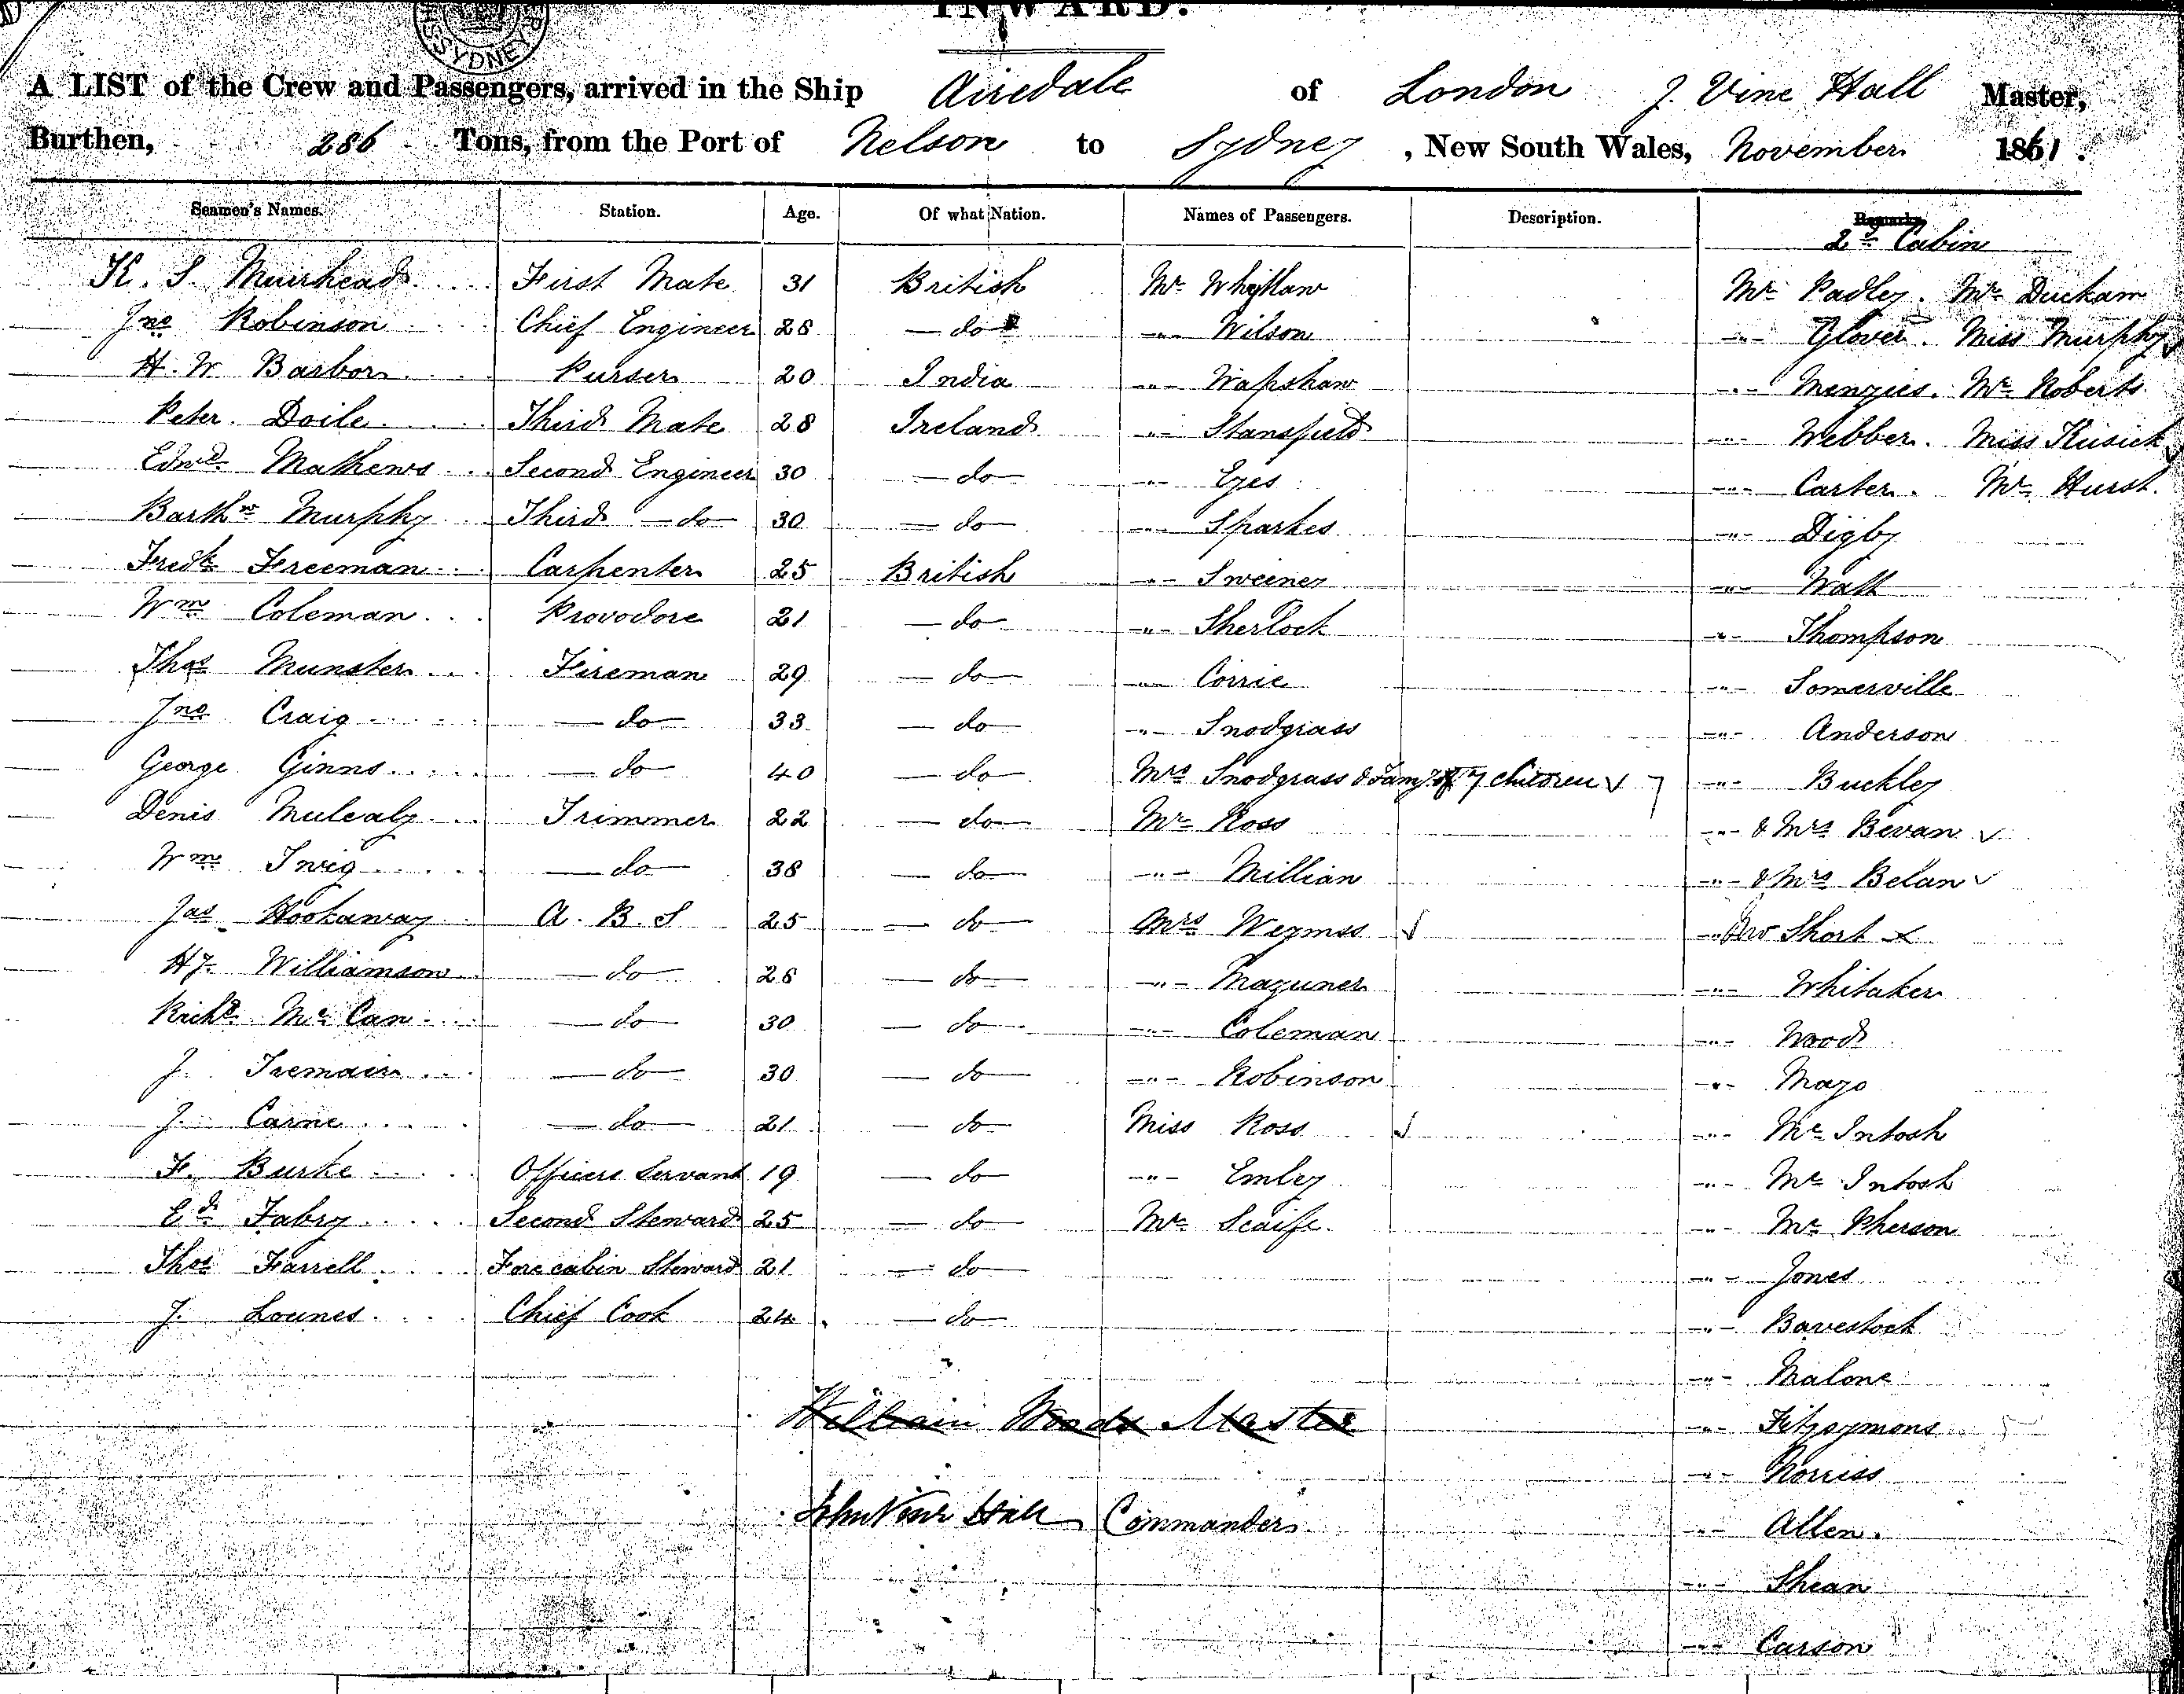 INWARD.
SYDNEY
A LIST of the Crew and Passengers, arrived in the Ship Airedale of London J. Vine Hall Master,
Burthen, 286 Tons, from the Port of Nelson to Sydney, New South Wales, November 1861.
Seamen's Names. Station. Age. Of what Nation. Names of Passengers. Description. Remarks
2nd Cabin
K. S. Muirhead First Mate 31 British Mr Whytlaw Mr Padley. Mr Durham
Jno Robinson Chief Engineer 28 —do— -"- Wilson -"- Glover. Miss Murphy
H. W. Barbor Purser 20 India -"- Wapshaw -"- Menzies. Mr Roberts
Peter Doile Third Mate 28 Ireland -"- Stansfield -"- Webber. Miss Kusick
Edwd Mathews Second Engineer 30 —do— -"- Eyes -"- Carter. Mr Hurst.
Barthw Murphy Third —do— 30 —do— -"- Sparkes -"- Digby
Fredk Freeman Carpenter 25 British -"- Sweeney -"- Watt
Wm Coleman Provodore 21 —do— -"- Sherlock -"- Thompson
Thos Munster Fireman 29 —do— -"- Corrie -"- Somerville
Jno Craig —do— 33 —do— -"- Snodgrass -"- Anderson
George Ginns —do— 40 —do— Mrs Snodgrass & Famy of 7 children √ 7 -"- Buckley
Denis Mulealy Trimmer 22 —do— Mr Ross -"- & Mrs Bevan √
Wm Twig —do— 38 —do— -"- Millian -"- & Mrs Belan √
Jas Hookaway A. B. S 25 —do— Mrs Weymss √ -"- Short x
Hy Williamson —do— 28 —do— -"- Mazuner -"- Whitaker
Richd McCan —do— 30 —do— -"- Coleman -"- Wood
J. Tremain —do— 30 —do— -"- Robinson -"- Mayo
J. Carne —do— 21 —do— Miss Ross √ -"- McIntosh
F. Burke Officers Servant 19 —do— -"- Emley -"- McIntosh
Ed Fabry Second Steward 25 —do— Mr Scaife. -"- McPherson
Thos Farrell Fore cabin Steward 21 —do— -"- Jones
J. Lounes Chief Cook 24 —do— -"- Baverstock
-"- Malone
William Woods Master -"- Fitzsymons
-"- Norriss
John Vine Hall Commander -"- Allen.
-"- Shean
-"- Carson